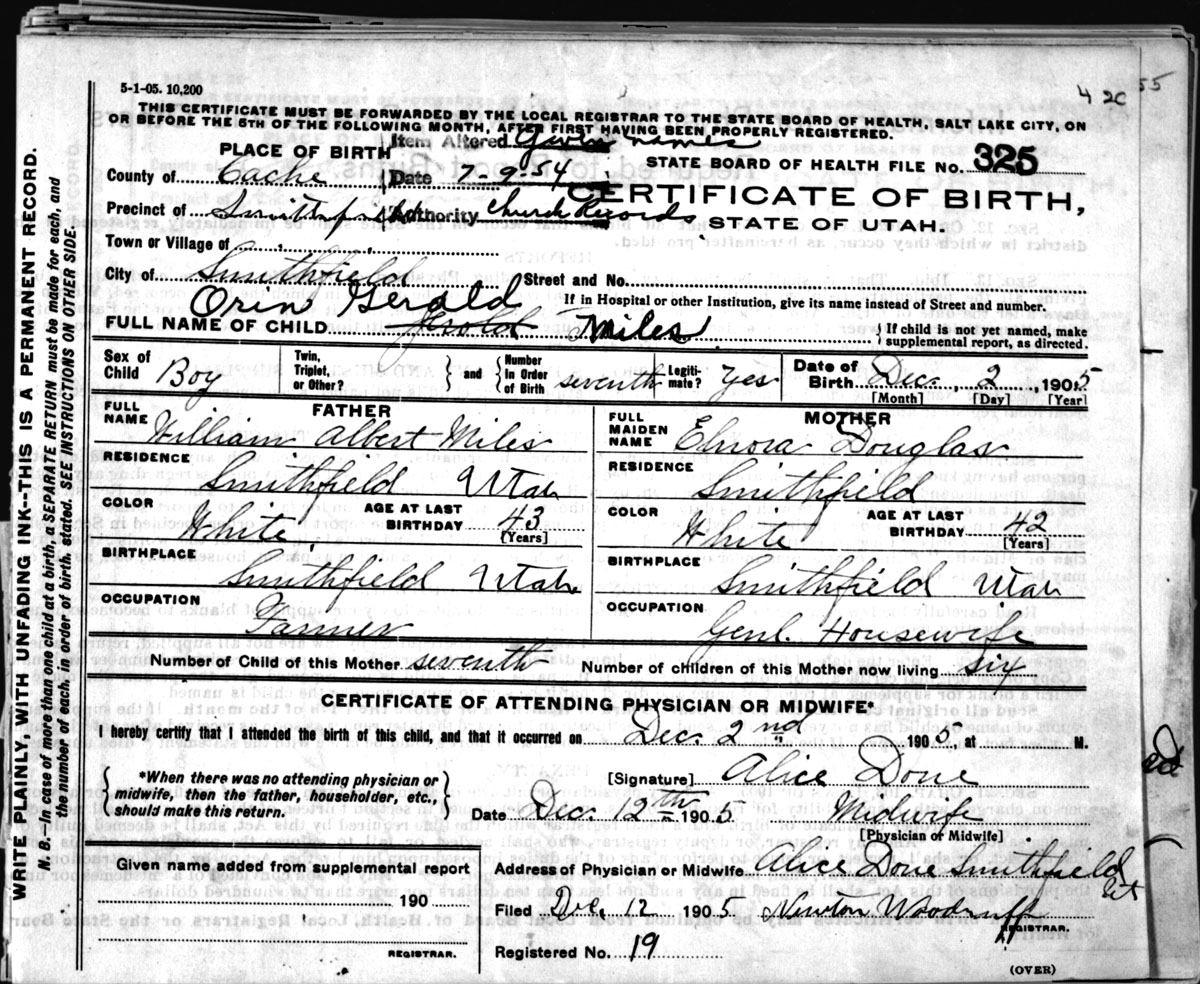 5-1-05. 10,200
4 2C 55
THIS CERTIFICATE MUST BE FORWARDED BY THE LOCAL REGISTRAR TO THE STATE BOARD OF HEALTH, SALT LAKE CITY, ON
OR BEFORE THE 5TH OF THE FOLLOWING MONTH, AFTER FIRST HAVING BEEN PROPERLY REGISTERED.
Item Altered Given names
PLACE OF BIRTH
STATE BOARD OF HEALTH FILE No. 325
County of Cache
Date 7-9-54
CERTIFICATE OF BIRTH,
Precinct of Smithfield
Authority Church Records
STATE OF UTAH.
Town or Village of
City of Smithfield
Street and No.
If in Hospital or other Institution, give its name instead of Street and number.
Orin Gerald
FULL NAME OF CHILD Jerold Miles
If child is not yet named, make
supplemental report, as directed.
Sex of Child Boy
Twin, Triplet, or Other?
and
Number in Order of Birth seventh
Legiti- mate? Yes
Date of Birth Dec. 2, 1905
[Month] [Day] [Year]
FATHER
FULL NAME William Albert Miles
RESIDENCE
Smithfield Utah
COLOR White
AGE AT LAST BIRTHDAY 43
[Years]
BIRTHPLACE
Smithfield Utah
OCCUPATION
Farmer
MOTHER
FULL MAIDEN NAME Elnora Douglas
RESIDENCE
Smithfield
COLOR White
AGE AT LAST BIRTHDAY 42
[Years]
BIRTHPLACE
Smithfield Utah
OCCUPATION
Genl. Housewife
Number of Child of this Mother seventh
Number of children of this Mother now living six
CERTIFICATE OF ATTENDING PHYSICIAN OR MIDWIFE*
I hereby certify that I attended the birth of this child, and that it occurred on Dec. 2nd 1905, at M.
*When there was no attending physician or
midwife, then the father, householder, etc.,
should make this return.
[Signature] Alice Done
Date Dec. 12th 1905 Midwife
[Physician or Midwife]
Given name added from supplemental report
190
REGISTRAR.
Address of Physician or Midwife Alice Done Smithfield
Ut
Filed Dec. 12 1905 Newton Woodruff
REGISTRAR.
Registered No. 19
(OVER)
WRITE PLAINLY, WITH UNFADING INK--THIS IS A PERMANENT RECORD.
N. B.--In case of more than one child at a birth, a SEPARATE RETURN must be made for each, and
the number of each, in order of birth, stated. SEE INSTRUCTIONS ON OTHER SIDE.
ed